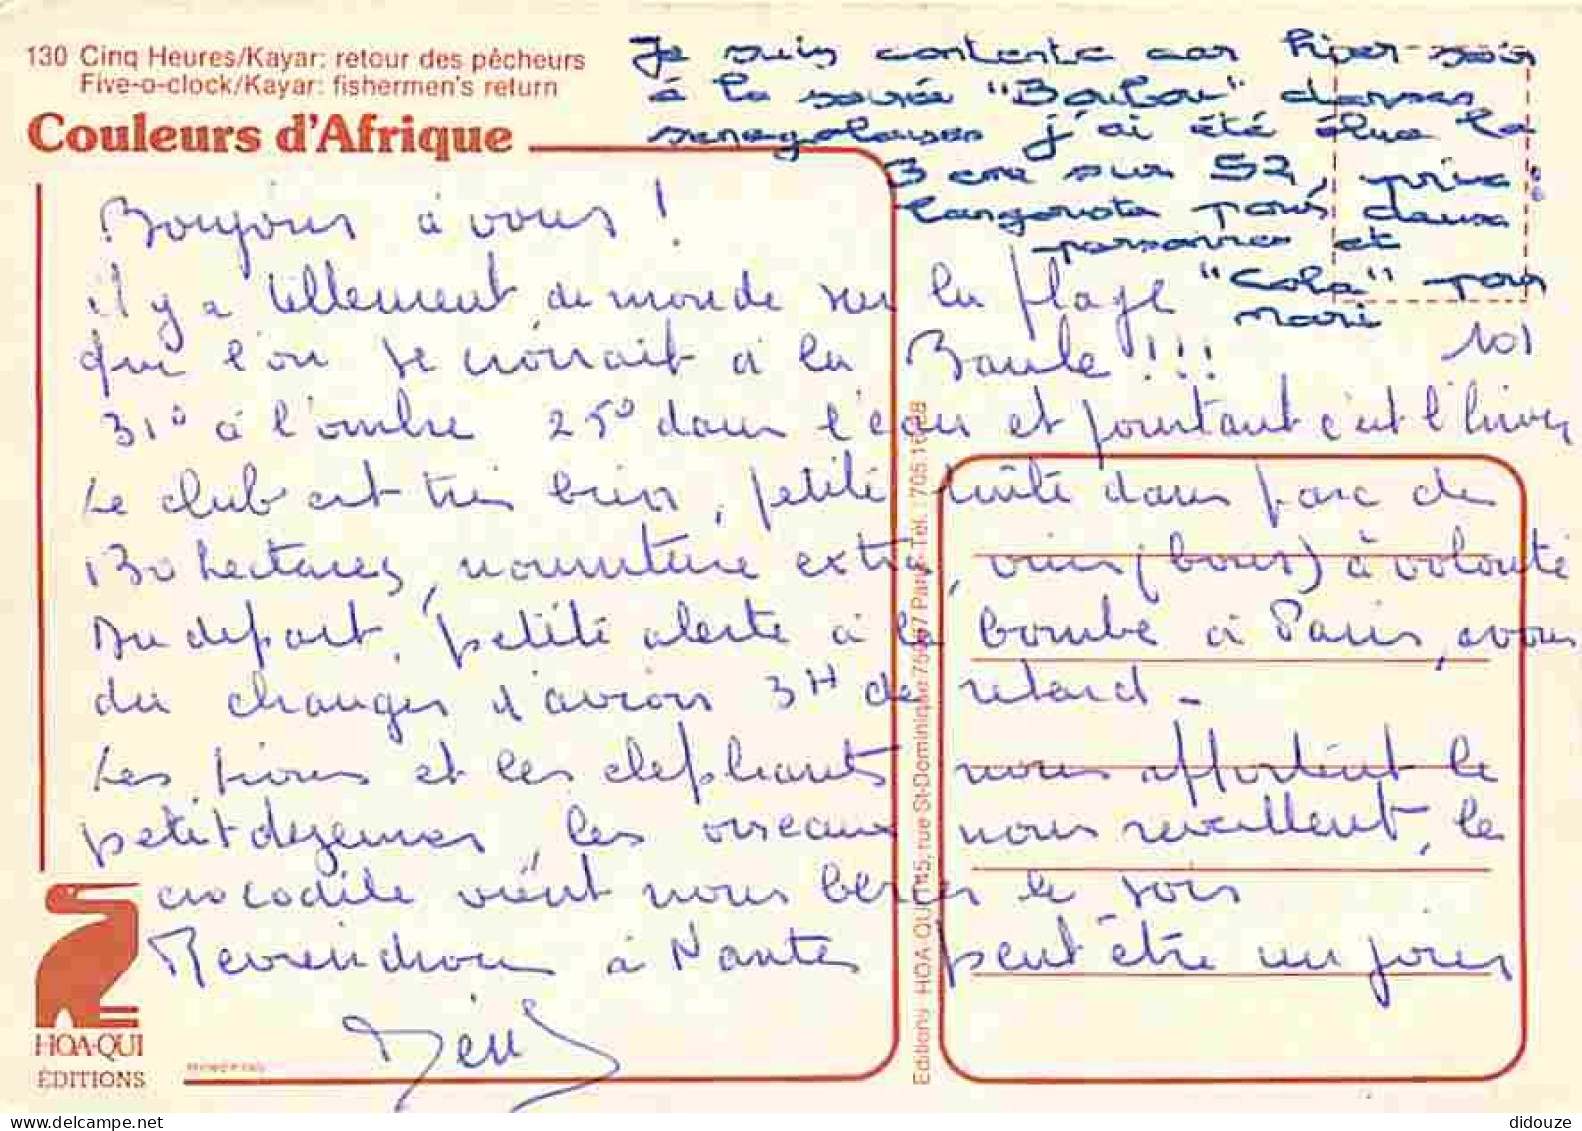 130 Cinq Heures/Kayar: retour des pêcheurs
Five-o-clock/Kayar: fishermen's return
Couleurs d'Afrique
Je suis contente car hier soir
à la soirée "Boubou" danses
senegalaises j'ai été élue la
3eme sur 52, prix:
langouste pour deux
personnes et
"Cola" pour
mari
101
Bonjour à vous !
il y a tellement de monde sur la plage
que l'on se croirait à la Baule !!!
31° à l'ombre 25° dans l'eau et pourtant c'est l'hiver
Le club est très bien, petite suite dans parc de
130 hectares, nourriture extra, vins (bons) à volonté
Au depart, petite alerte à la bombe à Paris, avons
du changer d'avion 3H de retard -
Les lions et les elephants nous apportent le
petit dejeuner, les oiseaux nous reveillent, le
crocodile vient nous bercer le soir
Reviendrons à Nantes peut être un jour
HOA-QUI
ÉDITIONS
Editions HOA-QUI 145, rue St-Dominique 75007 Paris Tél.: 705 1
didouze